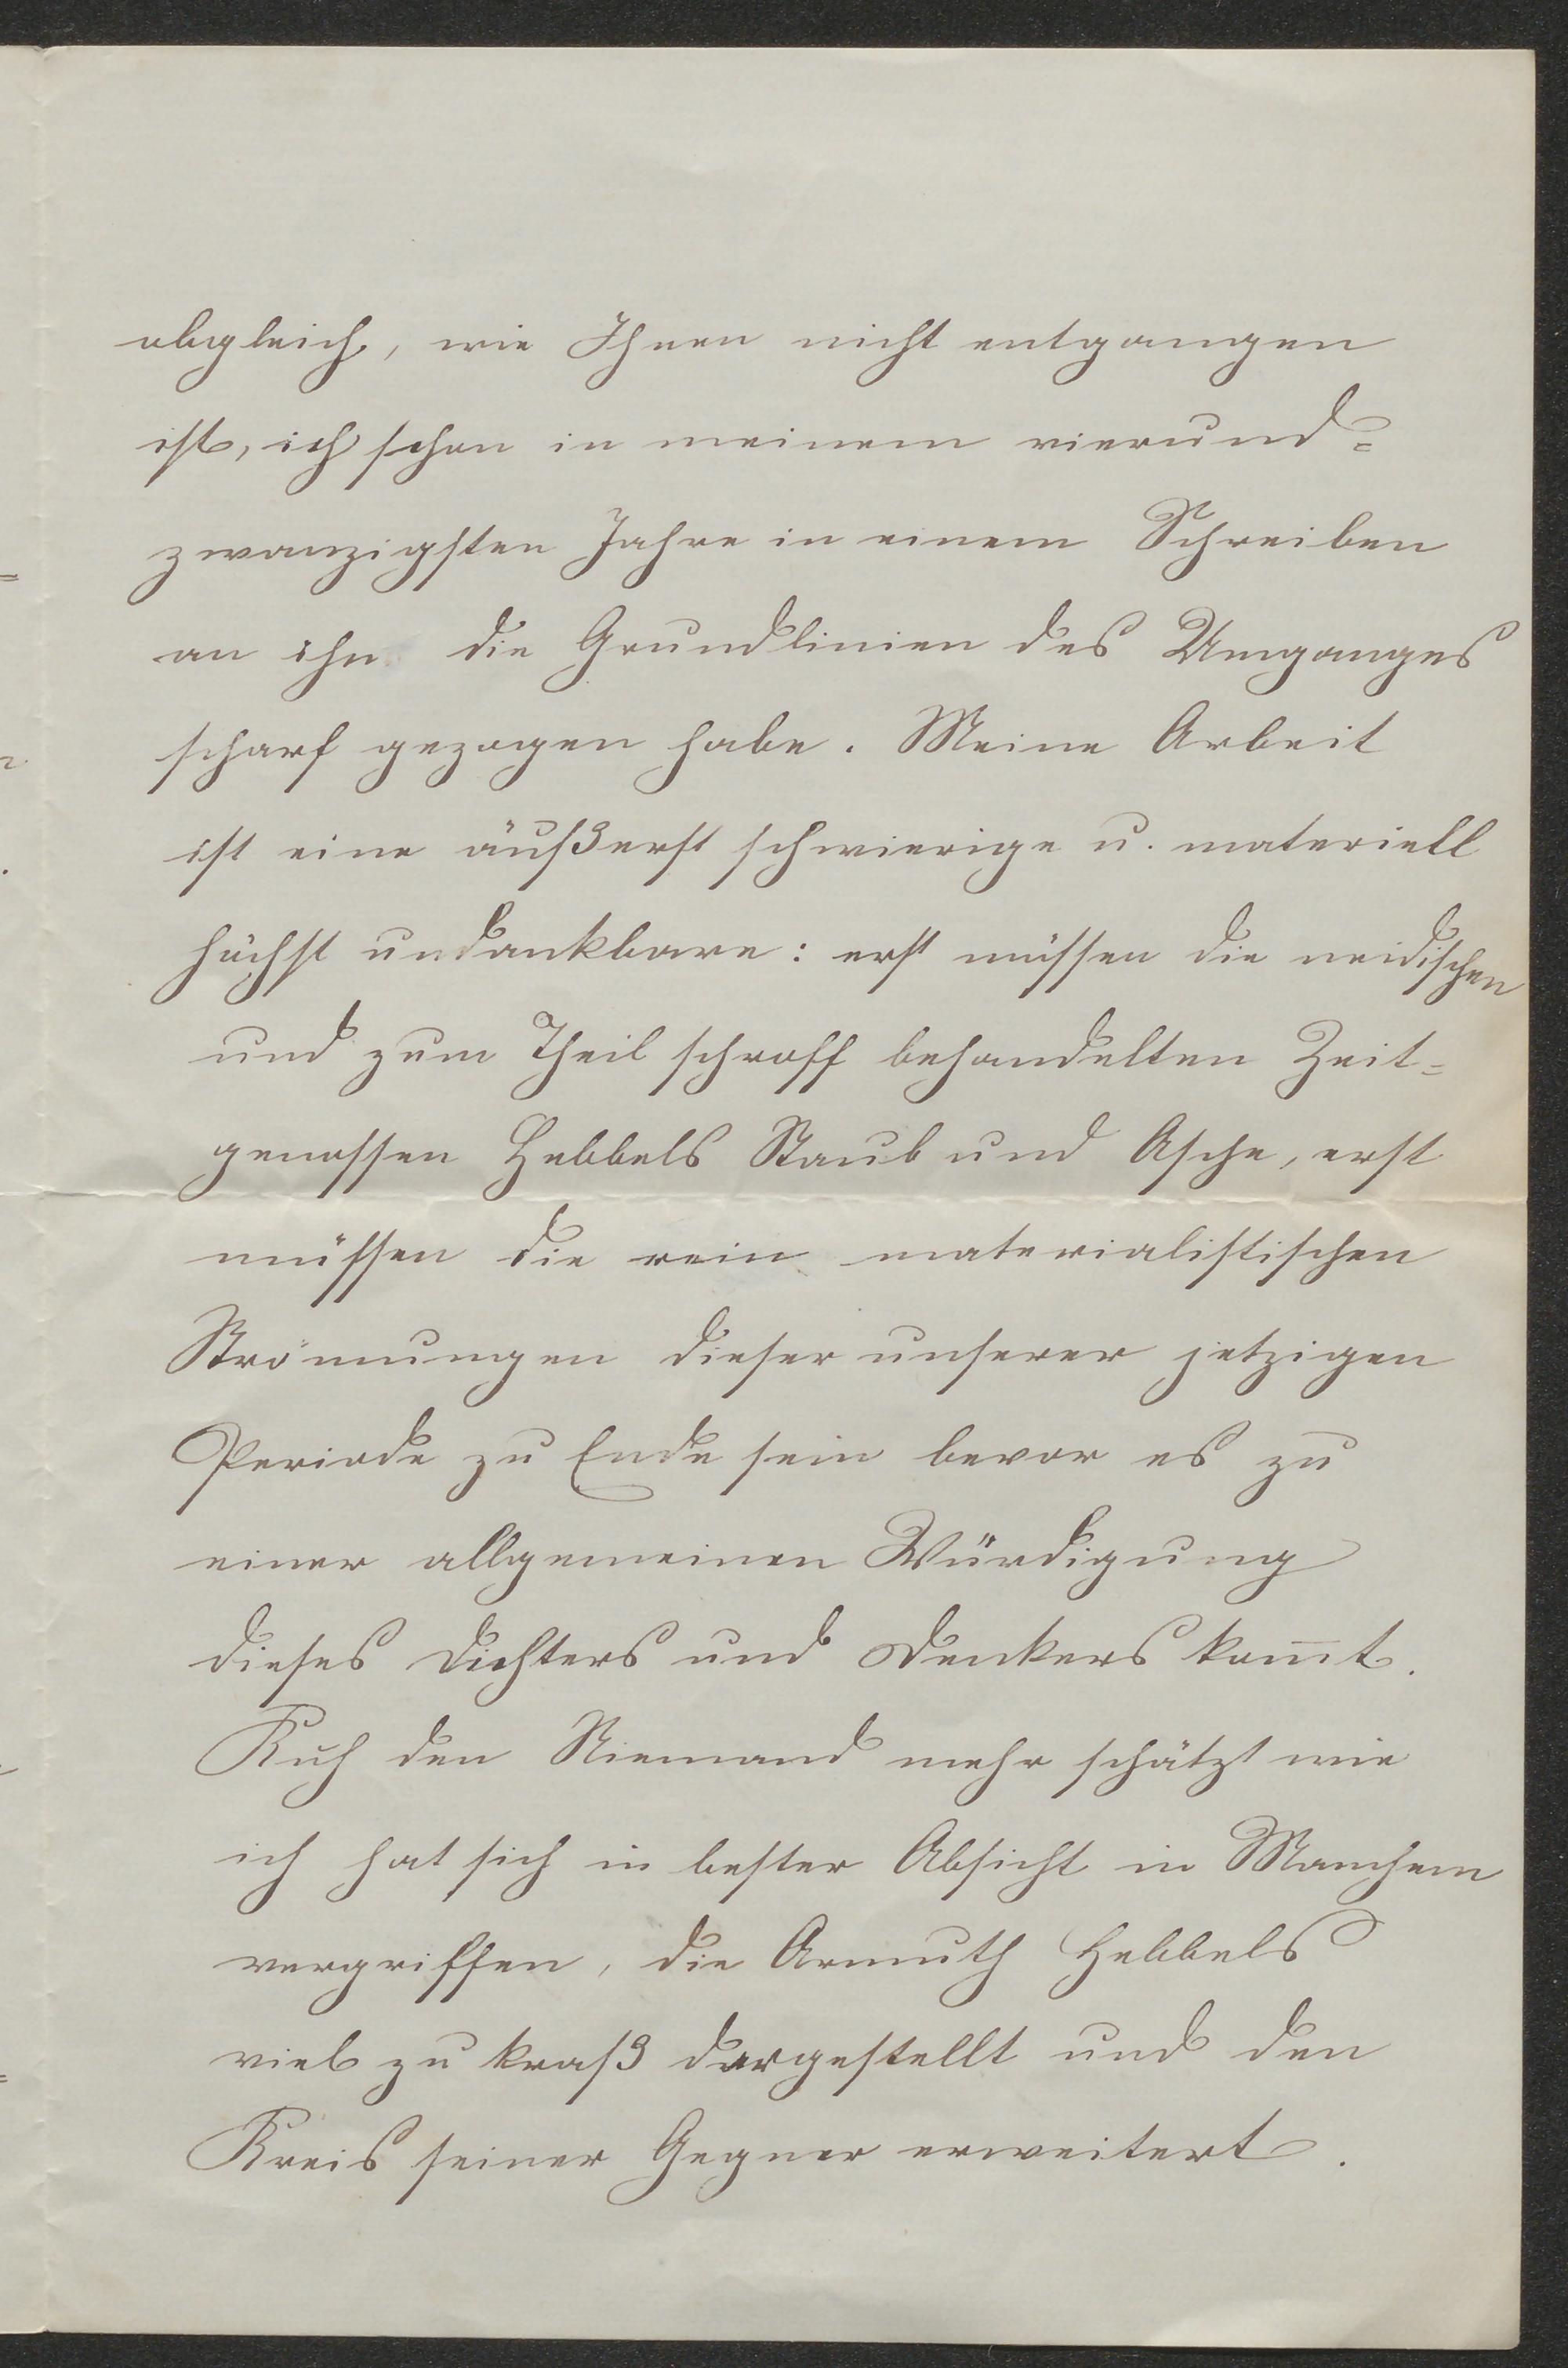 obgleich, wie Ihnen nicht entgangen
ist, ich schon in meinem vierund=
zwanzigsten Jahre in einem Schreiben
an ihn die Grundlinien des Umganges
scharf gezogen habe. Meine Arbeit
ist eine äußerst schwierige u. materiell
höchst undankbare: erst müssen die neidischen
und zum Theil schroff behandelten Zeit=
genossen Hebbels Staub und Asche, erst
müssen die rein materialistischen
Strömungen dieser unserer jetzigen
Periode zu Ende sein bevor es zu
einer allgemeinen Würdigung
dieses Dichters und Denkers kom̄t.
Kuh den Niemand mehr schätzt wie
ich hat sich in bester Absicht in Manchem
vergriffen, die Armuth Hebbels
viel zu kraß dargestellt und den
Kreis seiner Gegner erweitert.